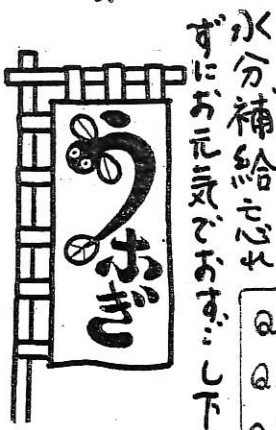 水分補給忘れ
ずにお元気でおすごし下
うなぎ